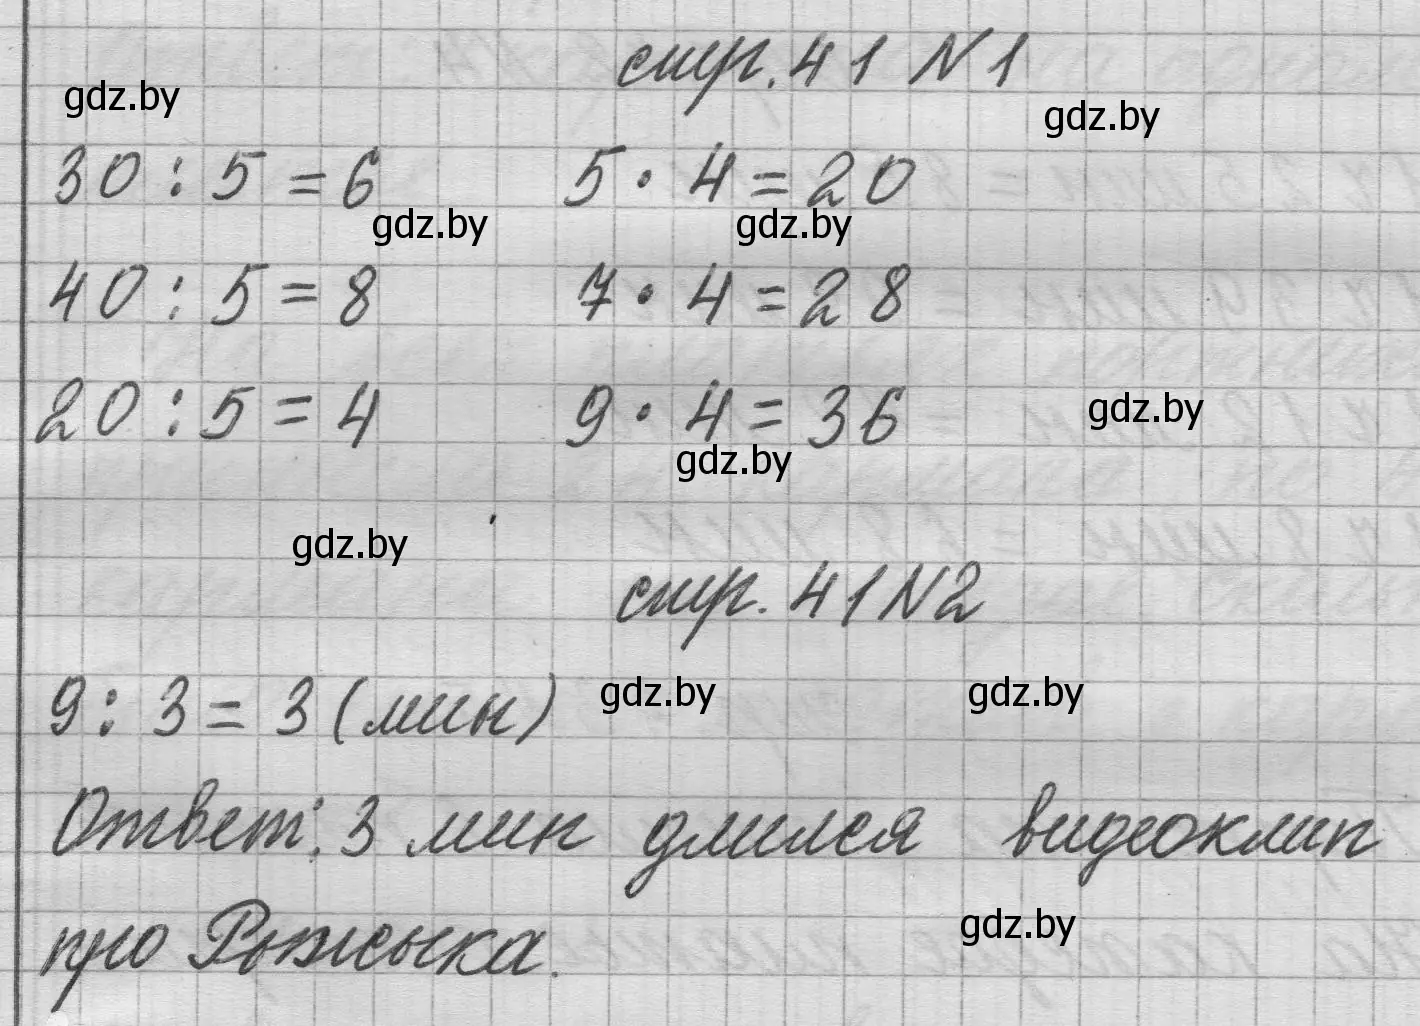 стр. 41 N1
gdz.by
gdz.by
30 : 5 = 6 5 · 4 = 20
gdz.by gdz.by
40 : 5 = 8 7 · 4 = 28
20 : 5 = 4 9 · 4 = 36
gdz.by
gdz.by
gdz.by
стр. 41 N2
9 : 3 = 3 (мин)
gdz.by gdz.by
Ответ: 3 мин длился видеоклип
про Рыжыка.
gdz.by